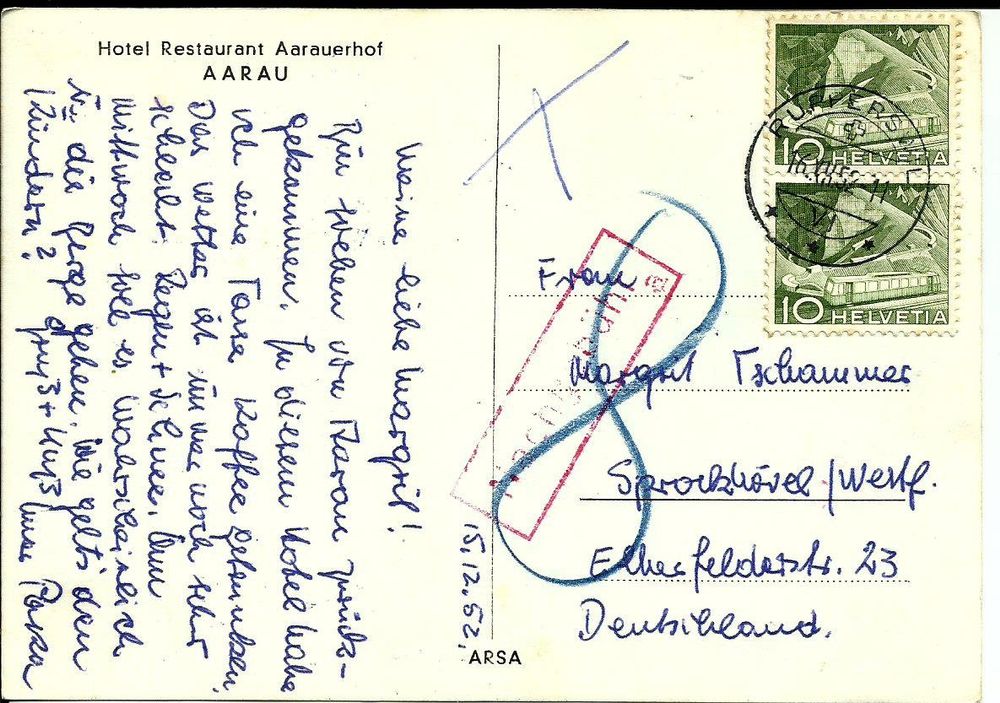 Hotel Restaurant Aarauerhof
AARAU
Meine liebe Margrit!
Bin soeben von Aarau zurück-
gekommen. In diesem Hotel habe
ich eine Tasse Kaffee getrunken.
Das Wetter ist immer noch sehr
schlecht. Regen + Schnee. Am
Mittwoch soll es wahrscheinlich
in die Berge gehen. Wie gehts den
Kindern? Gruß + Kuß
15.12.52.
ARSA
Nachgebühr
8
HELVETIA
10
HELVETIA
10
RUPPERSWIL
16.XII.52-11
Frau
Margrit Tschammer
Sprockhövel/Westf.
Elberfelderstr. 23
Deutschland.